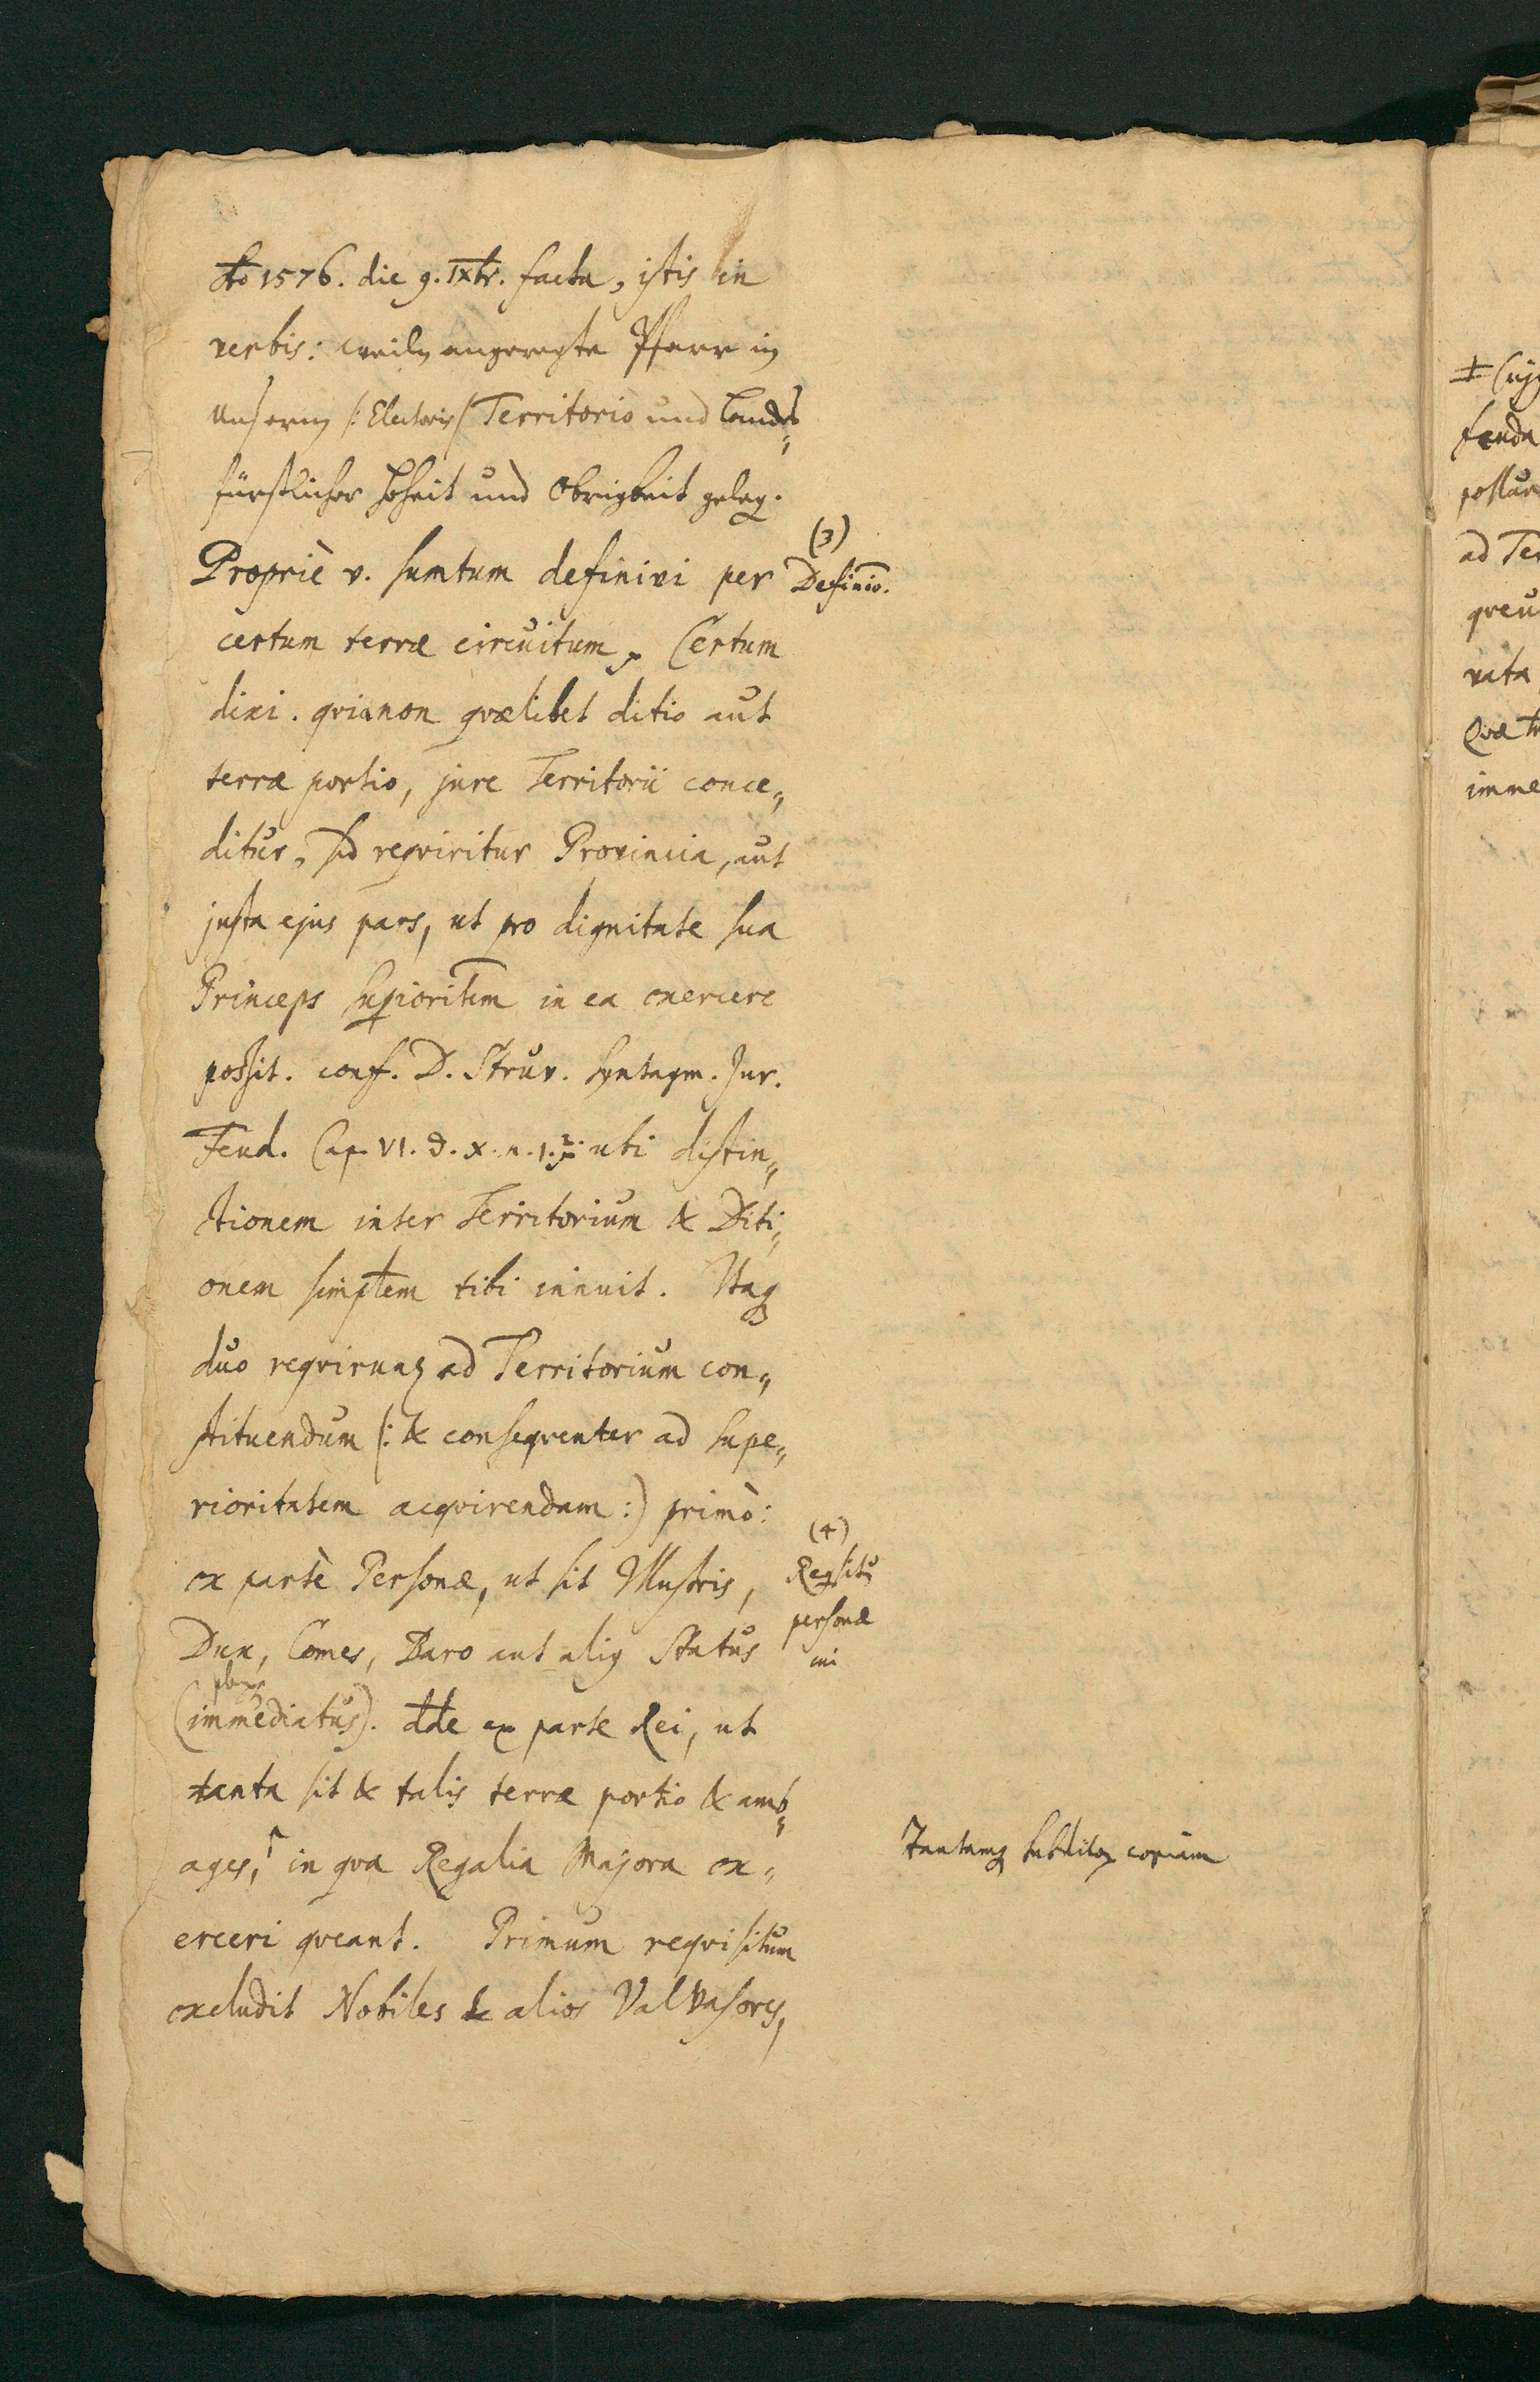 Ao 1576. die 9. IXbr. facta, istis in
verbis: weiln angeregte Pfarr in
Unserm /: Electoris / Territorio und Landes„
fürstlicher Hoheit und Obrigkeit geleg.
(3)
Propriè v. sumtum definivi per
Definio.
certum terræ circuitum. Certum
dixi. qvia non qvælibet ditio aut
terræ portio, jure Territorii conce„
ditur, sed reqviritur Provincia, aut
justa ejus pars, ut pro dignitate sua
Princeps supioritem in ea exercere
possit. conf. D. Struv. Syntagm. Jur.
Feud. Cap. VI. . X. n. 1. 2. ubi distin„
ctionem inter Territorium & Diti„
onem simplem tibi innuit. Itaq
duo reqvirunt ad Territorium con„
stituendum /: & conseqventer ad supe„
rioritatem acqvirendam :) primò:
(4)
ex parte Personæ, ut sit Illustris,
Reqsitu
personæ
Dux, Comes, Baro aut aliq Status
(immediatus). dde ex parte Rei, ut
tanta sit & talis terræ portio & amb„
ages, in qva Regalia Majora ex„
Tantamq subditor copiam
erceri qveant. Primum reqvisitum
excludit Nobiles & alios Valvasores,
feuda
possun
ad Ter
qveu
rata
Qvæ
imme